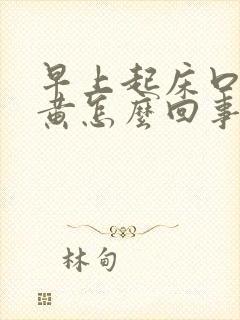 早上起床口
黄怎麽回事
林甸